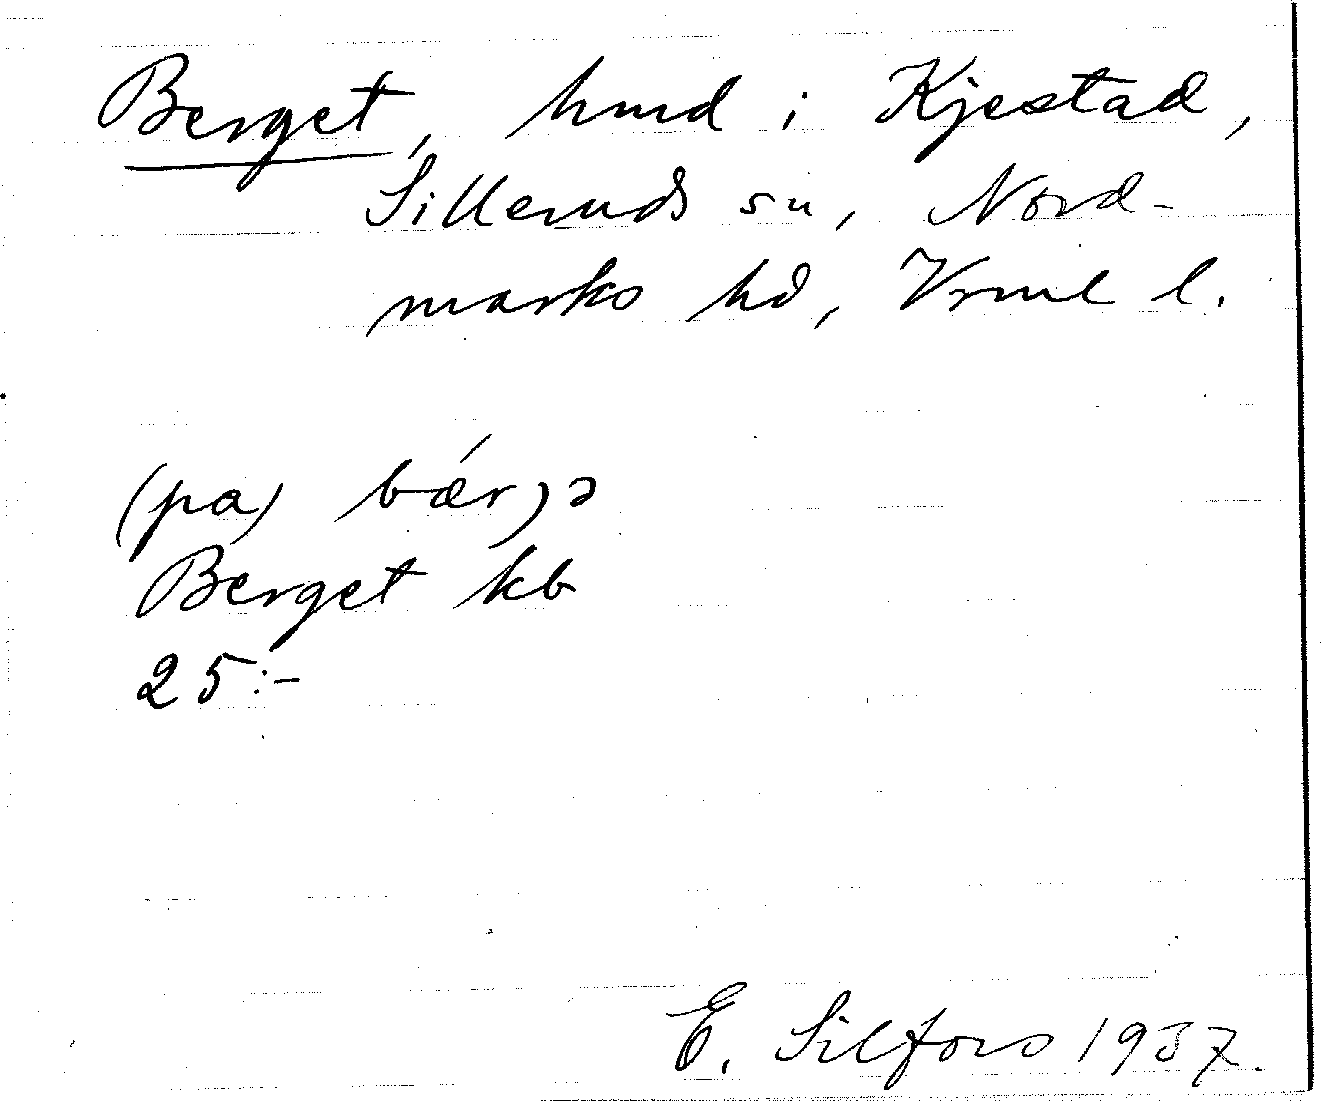 Berget, hmd i Kjestad,
Silleruds sn, Nord-
marks hd, Vrml l.
(pa) bǽr)ə
Berget kb
25:-
E. Silfors 1937.